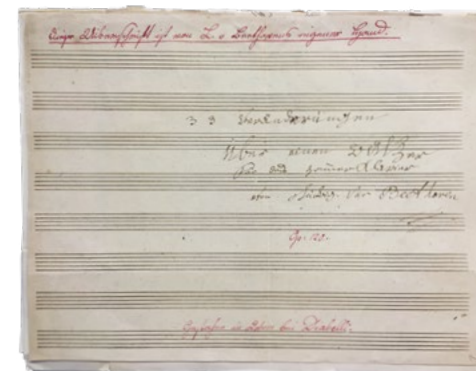 Diese Überschrift ist von L. v. Beethovens eigener Hand.
33 Veränderungen
über einen Walzer
für das
von Ludwig van Beethoven
Op. 120.
bei Diabelli.